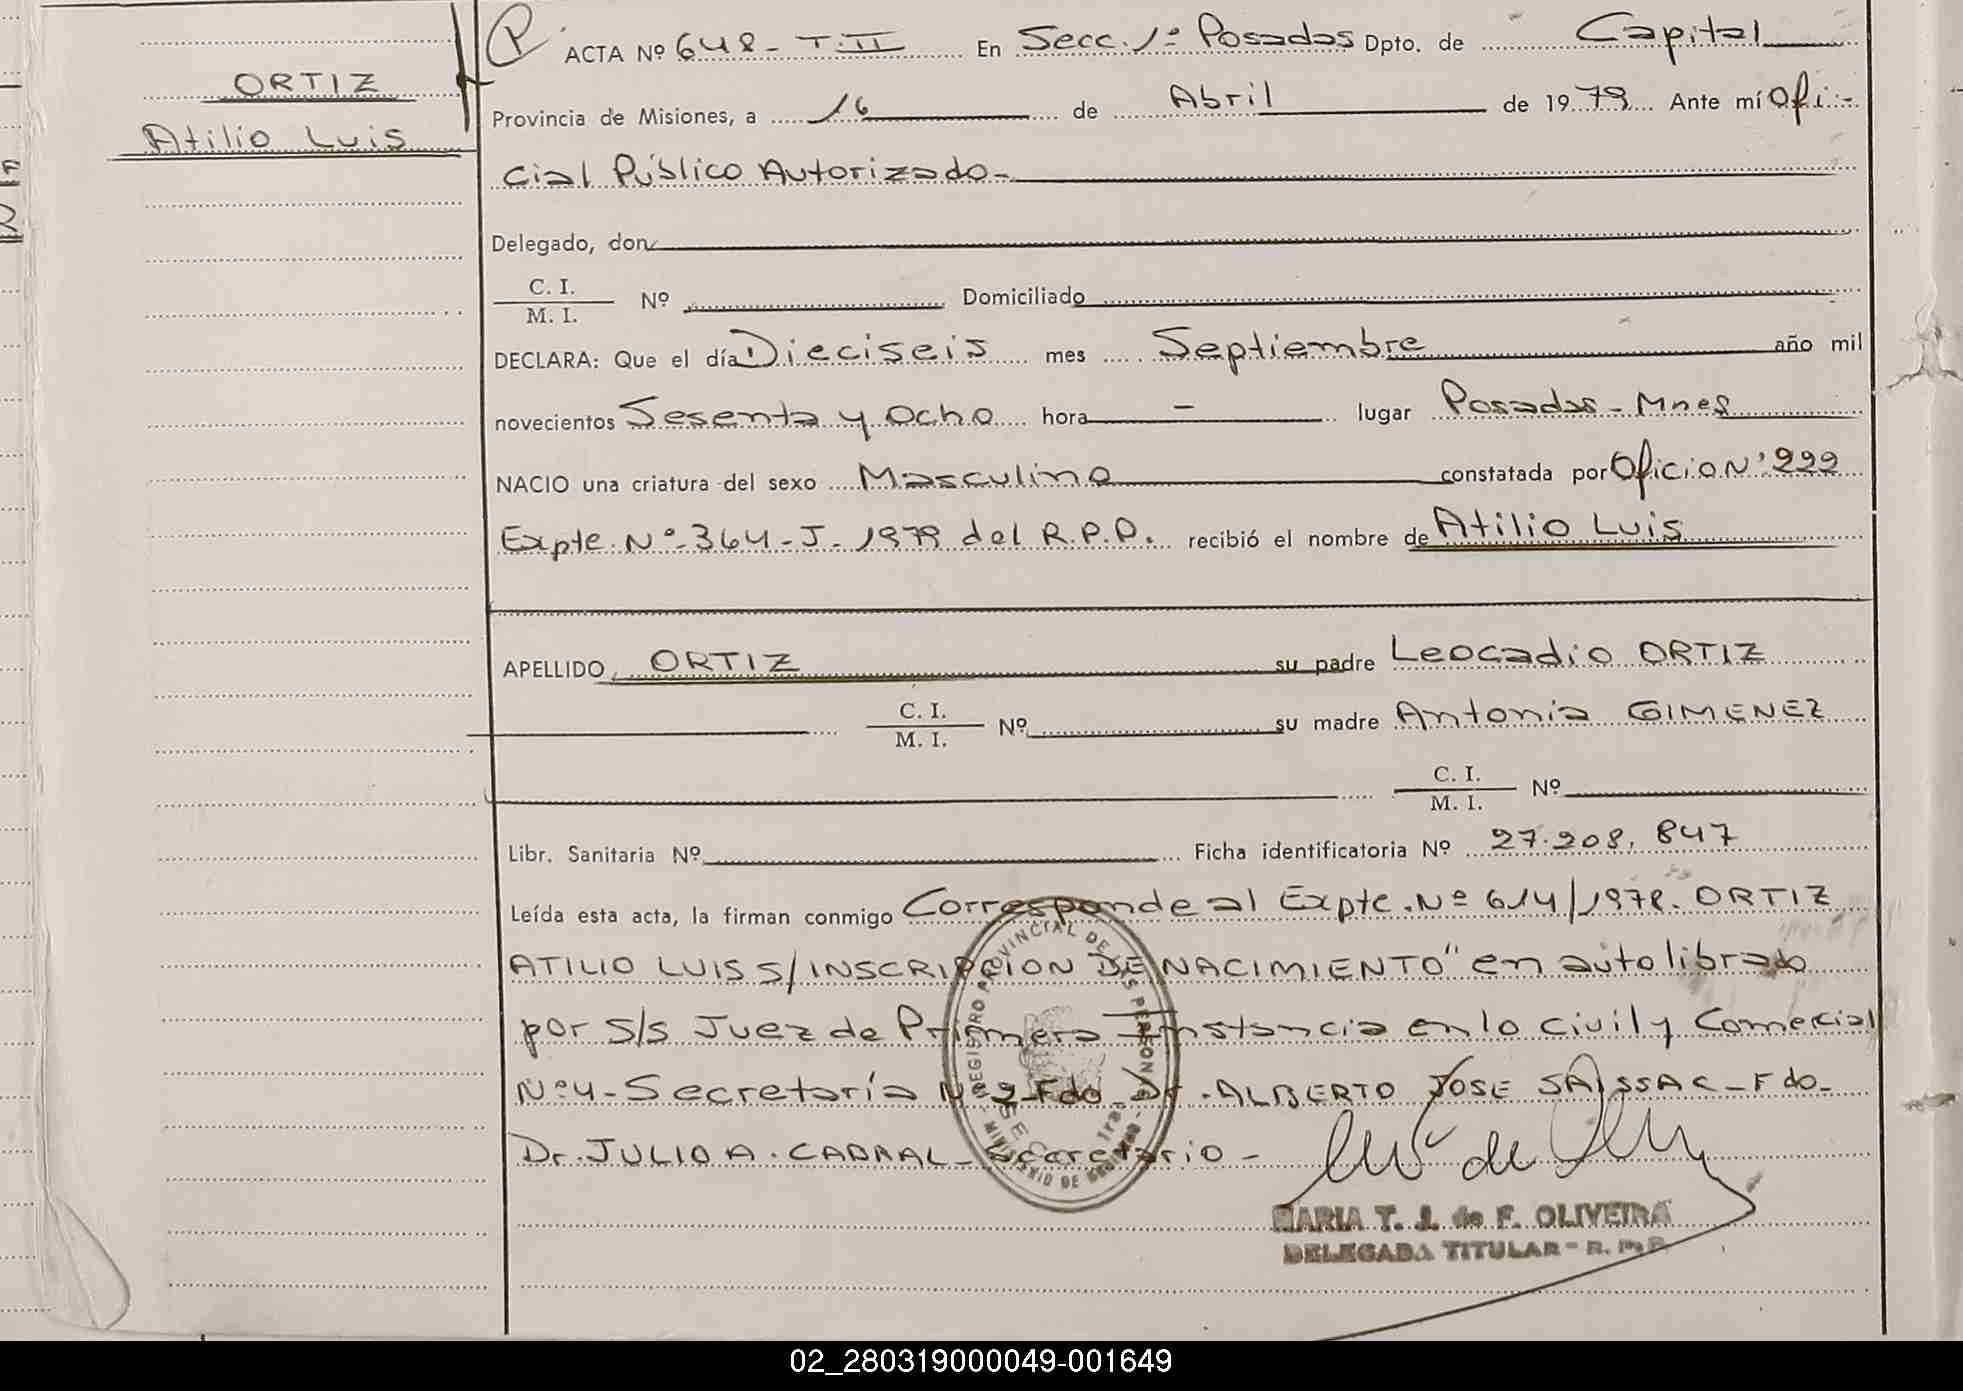 ORTIZ
Atilio Luis
P ACTA Nº 648 - T. II En Secc. 1º Posadas Dpto. de Capital
Provincia de Misiones, a 16 de Abril de 1979 Ante mí Ofi-
cial Público Autorizado-
Delegado, don
C. I.
M. I.
Nº Domiciliado
DECLARA: Que el día Dieciseis mes Septiembre año mil
novecientos Sesenta y Ocho hora - lugar Posadas - Mnes
NACIO una criatura del sexo Masculino constatada por Oficio Nº 222
Expte. Nº 364-J-1979 del R.P.P. recibió el nombre de Atilio Luis
APELLIDO ORTIZ su padre Leocadio ORTIZ
C. I.
M. I.
Nº su madre Antonia GIMENEZ
C. I.
M. I.
Nº
Libr. Sanitaria Nº Ficha identificatoria Nº 27.208.847
Leída esta acta, la firman conmigo Corresponde al Expte. Nº 614/1978. ORTIZ
ATILIO LUIS S/INSCRIPCION DE NACIMIENTO" en auto librado
por S/S Juez de Primera Instancia en lo Civil y Comercial
Nº 4 - Secretaría Nº 2 - Fdo Dr. ALBERTO JOSE SAISSAC - Fdo-
Dr. JULIO A. CABRAL - Secretario -
REGISTRO PROVINCIAL DE LAS PERSONAS
MINISTERIO DE
MARIA T. J. de F. OLIVEIRA
DELEGADA TITULAR - R. P. P.
02_280319000049-001649